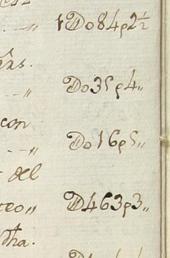 1Do84p2½
rs.
-- „ Do35p4„
con
-- „ Do16p5„
del
teo„ D463p3„
dha.